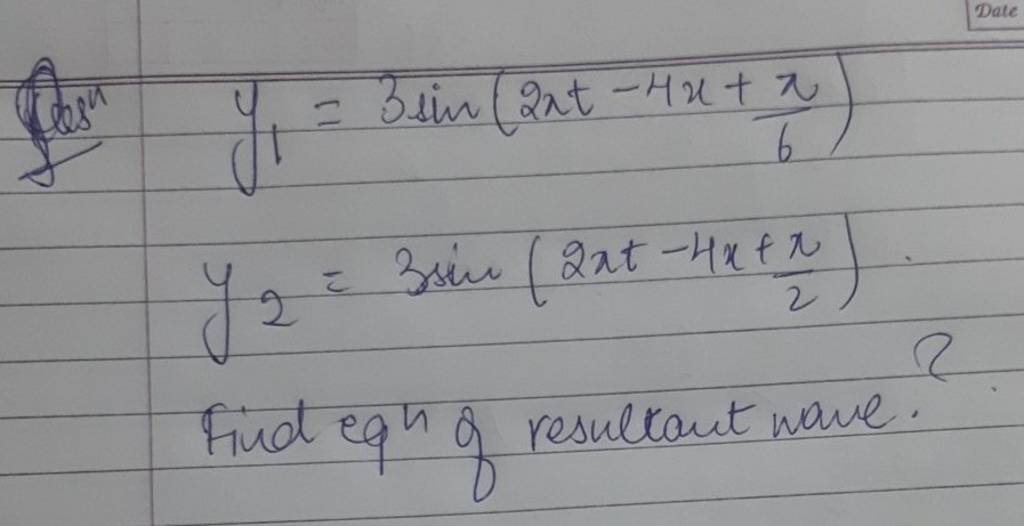 Date
Quesⁿ y₁ = 3 sin (2πt - 4x + π/6)
y₂ = 3 sin (2πt - 4x + π/2).
Find eqⁿ of resultant wave. ?